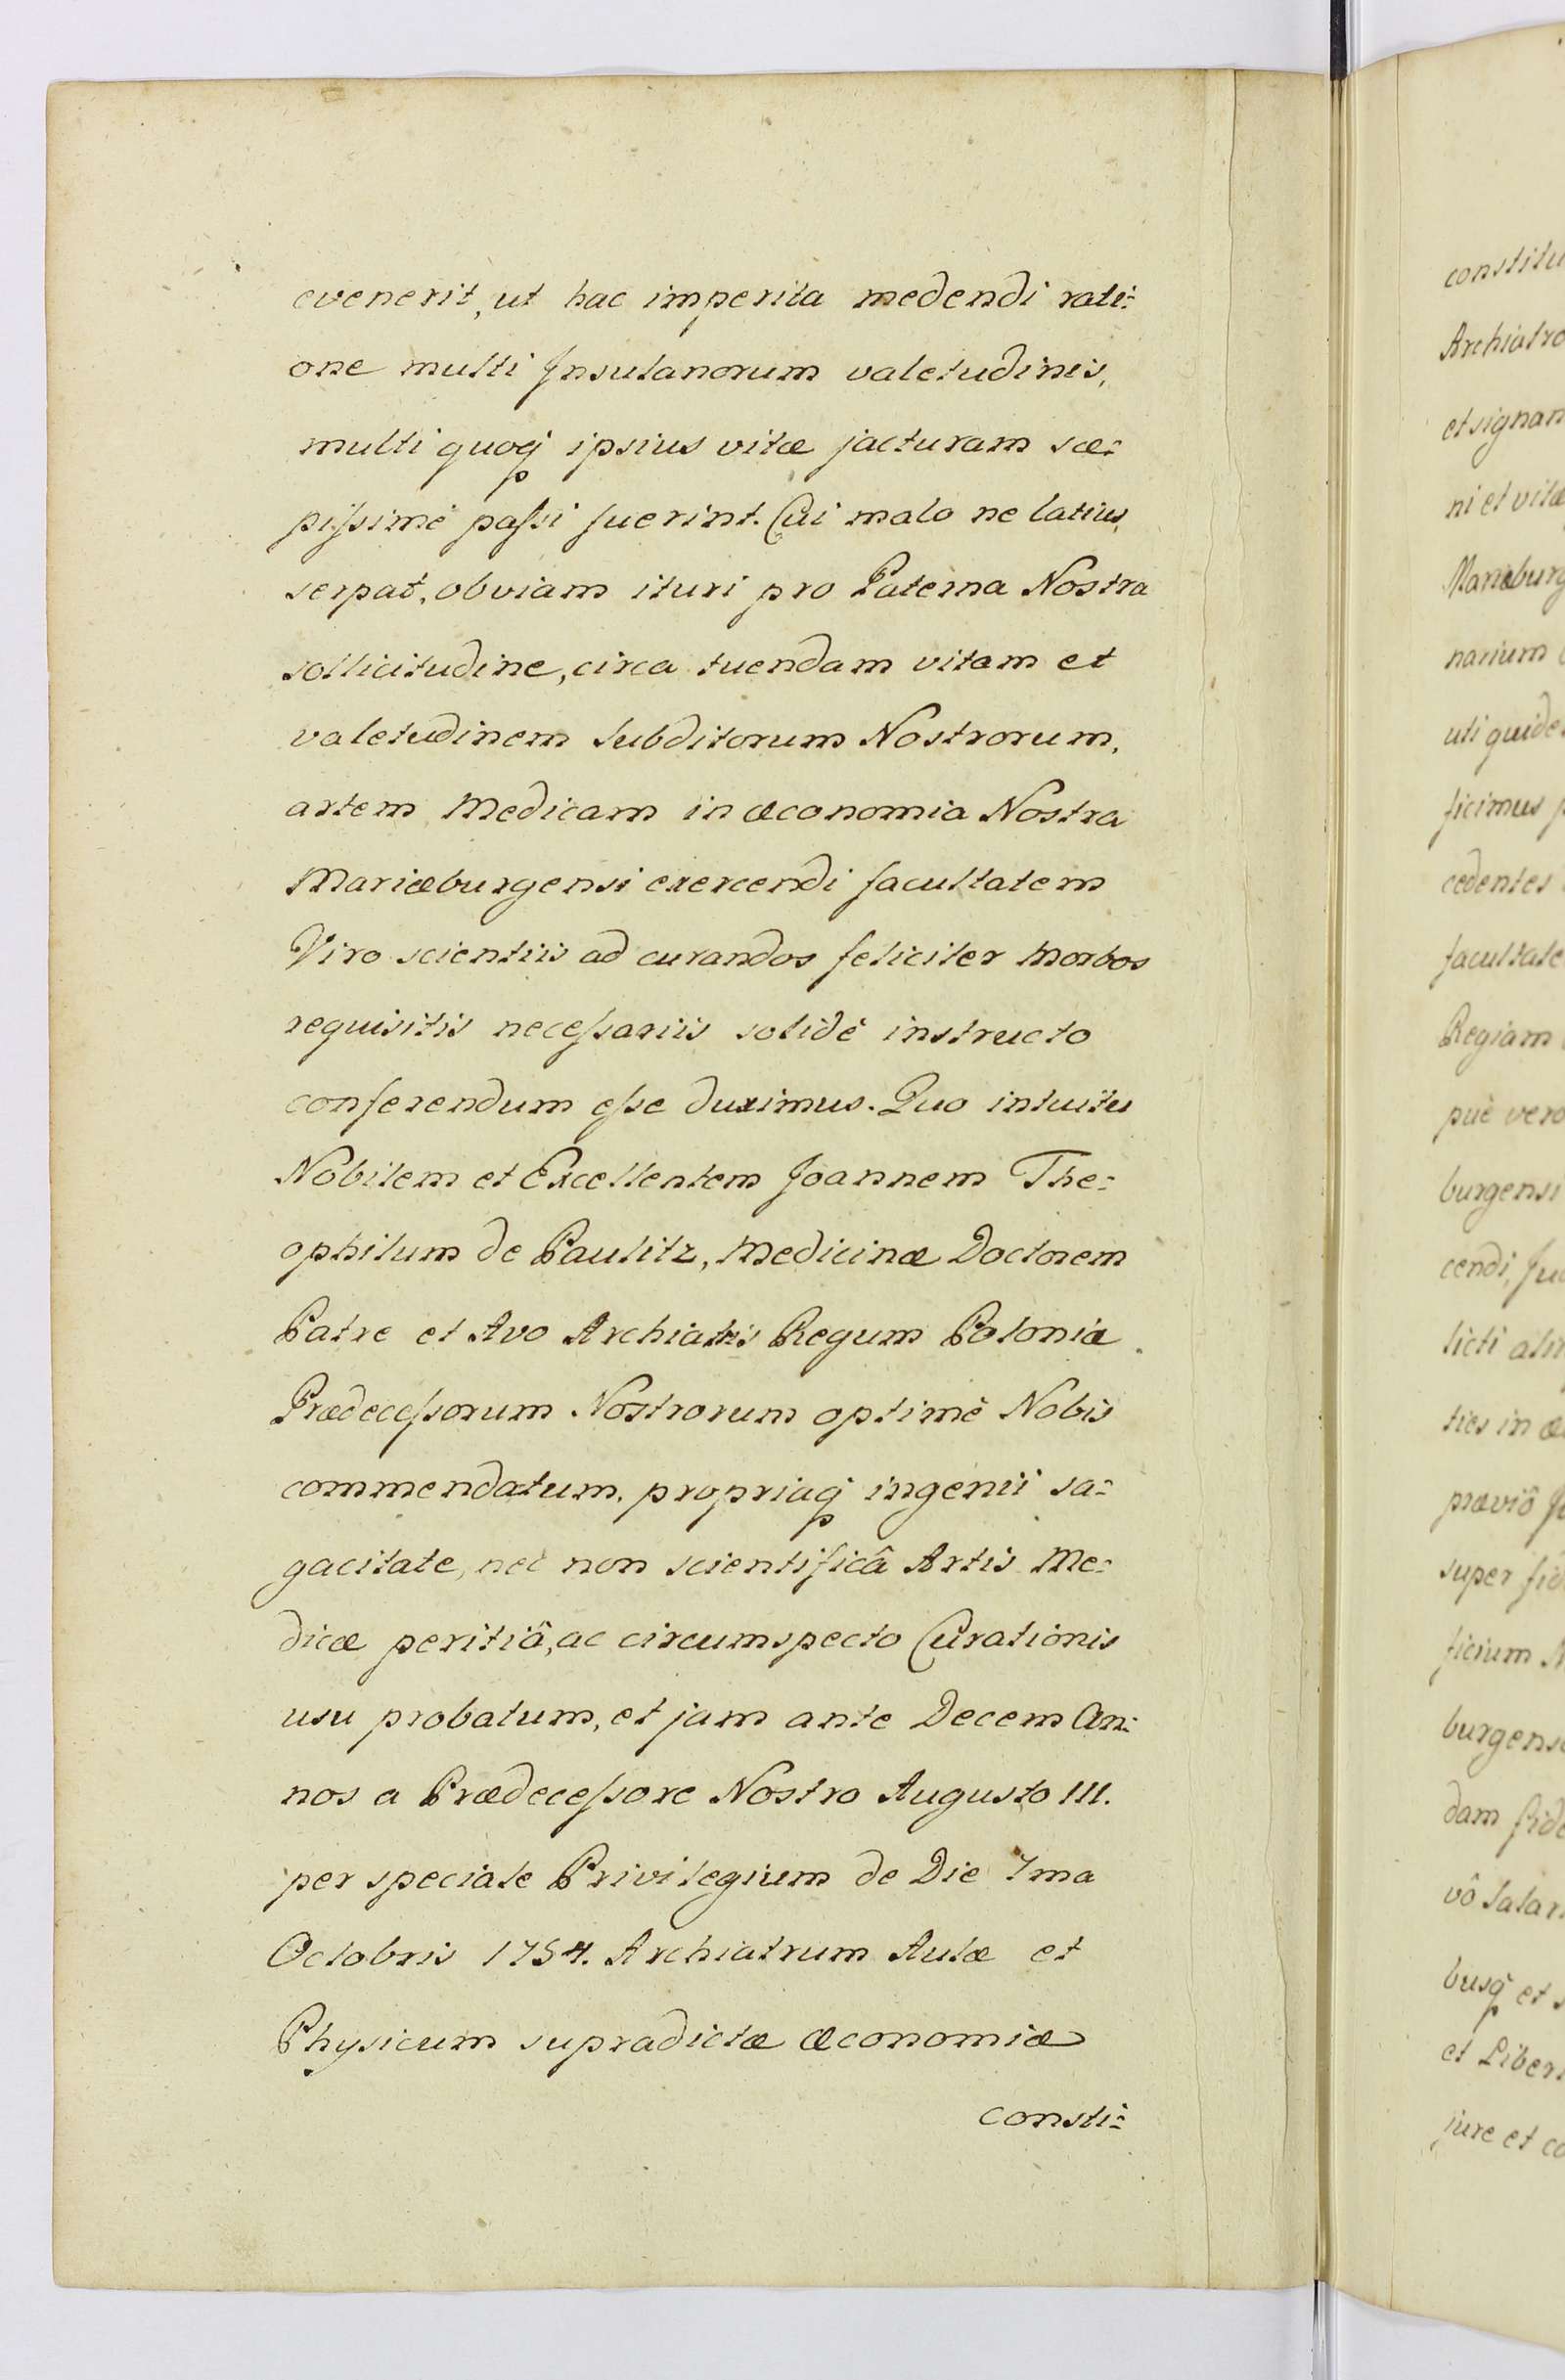 evenerit, ut hac imperita medendi rati-
one multi Insulanorum valetudinis,
multi quoq; ipsius vitæ jacturam sæ-
pissimè passi fuerint. Cui malo ne latius
serpat, obviam ituri pro Paterna Nostra
sollicitudine, circa tuendam vitam et
valetudinem Subditorum Nostrorum,
artem Medicam in œconomia Nostra
Mariæburgensi exercendi facultatem
Viro scientiis ad curandos feliciter Morbos
requisitis necessariis solidè instructo
conferendum esse duximus. Quo intuitu
Nobilem et Excellentem Joannem The-
ophilum de Paulitz, Medicinæ Doctorem
Patre et Avo Archiatris Regum Poloniæ
Prædecessorum Nostrorum optimè Nobis
commendatum, propriaq; ingenii sa-
gacitate, nec non scientificâ Artis Me-
dicæ peritiâ, ac circumspecto Curationis
usu probatum, et jam ante Decem An-
nos a Prædecessore Nostro Augusto III.
per speciale Privilegium de Die 7ma
Octobris 1754. Archiatrum Aulæ et
Physicum supradictæ œconomiæ
consti-
constitu
Archiatro
et signan
ni et vitæ
Mariæburg
narium
uti quide
ficimus p
cedentes
facultate
Regiam
puè vero
burgensi
cendi, Ju
licti ali
ties in œ
præviô J
super fid
ficium N
burgens
dam fide
vô Salar
busq; et s
et Liber
jure et co